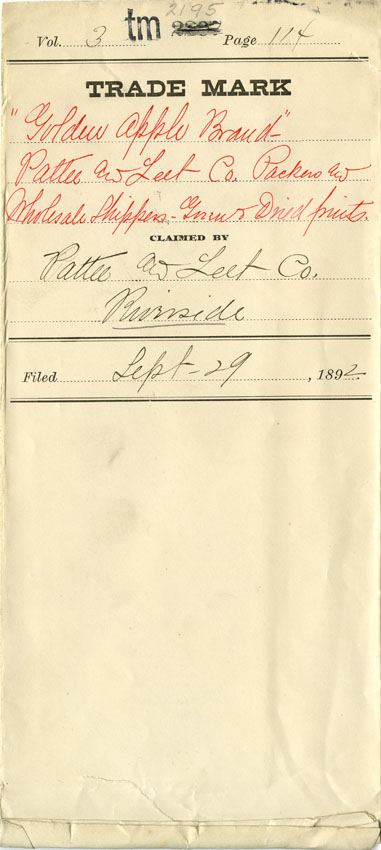 2195
Vol. 3 tm Page 114
TRADE MARK
"Golden Apple Brand"
Pattee and Leet Co. Packers and
Wholesale Shippers - Green & Dried fruits.
CLAIMED BY
Pattee and Leet Co.
Riverside
Filed Sept - 29, 1892.